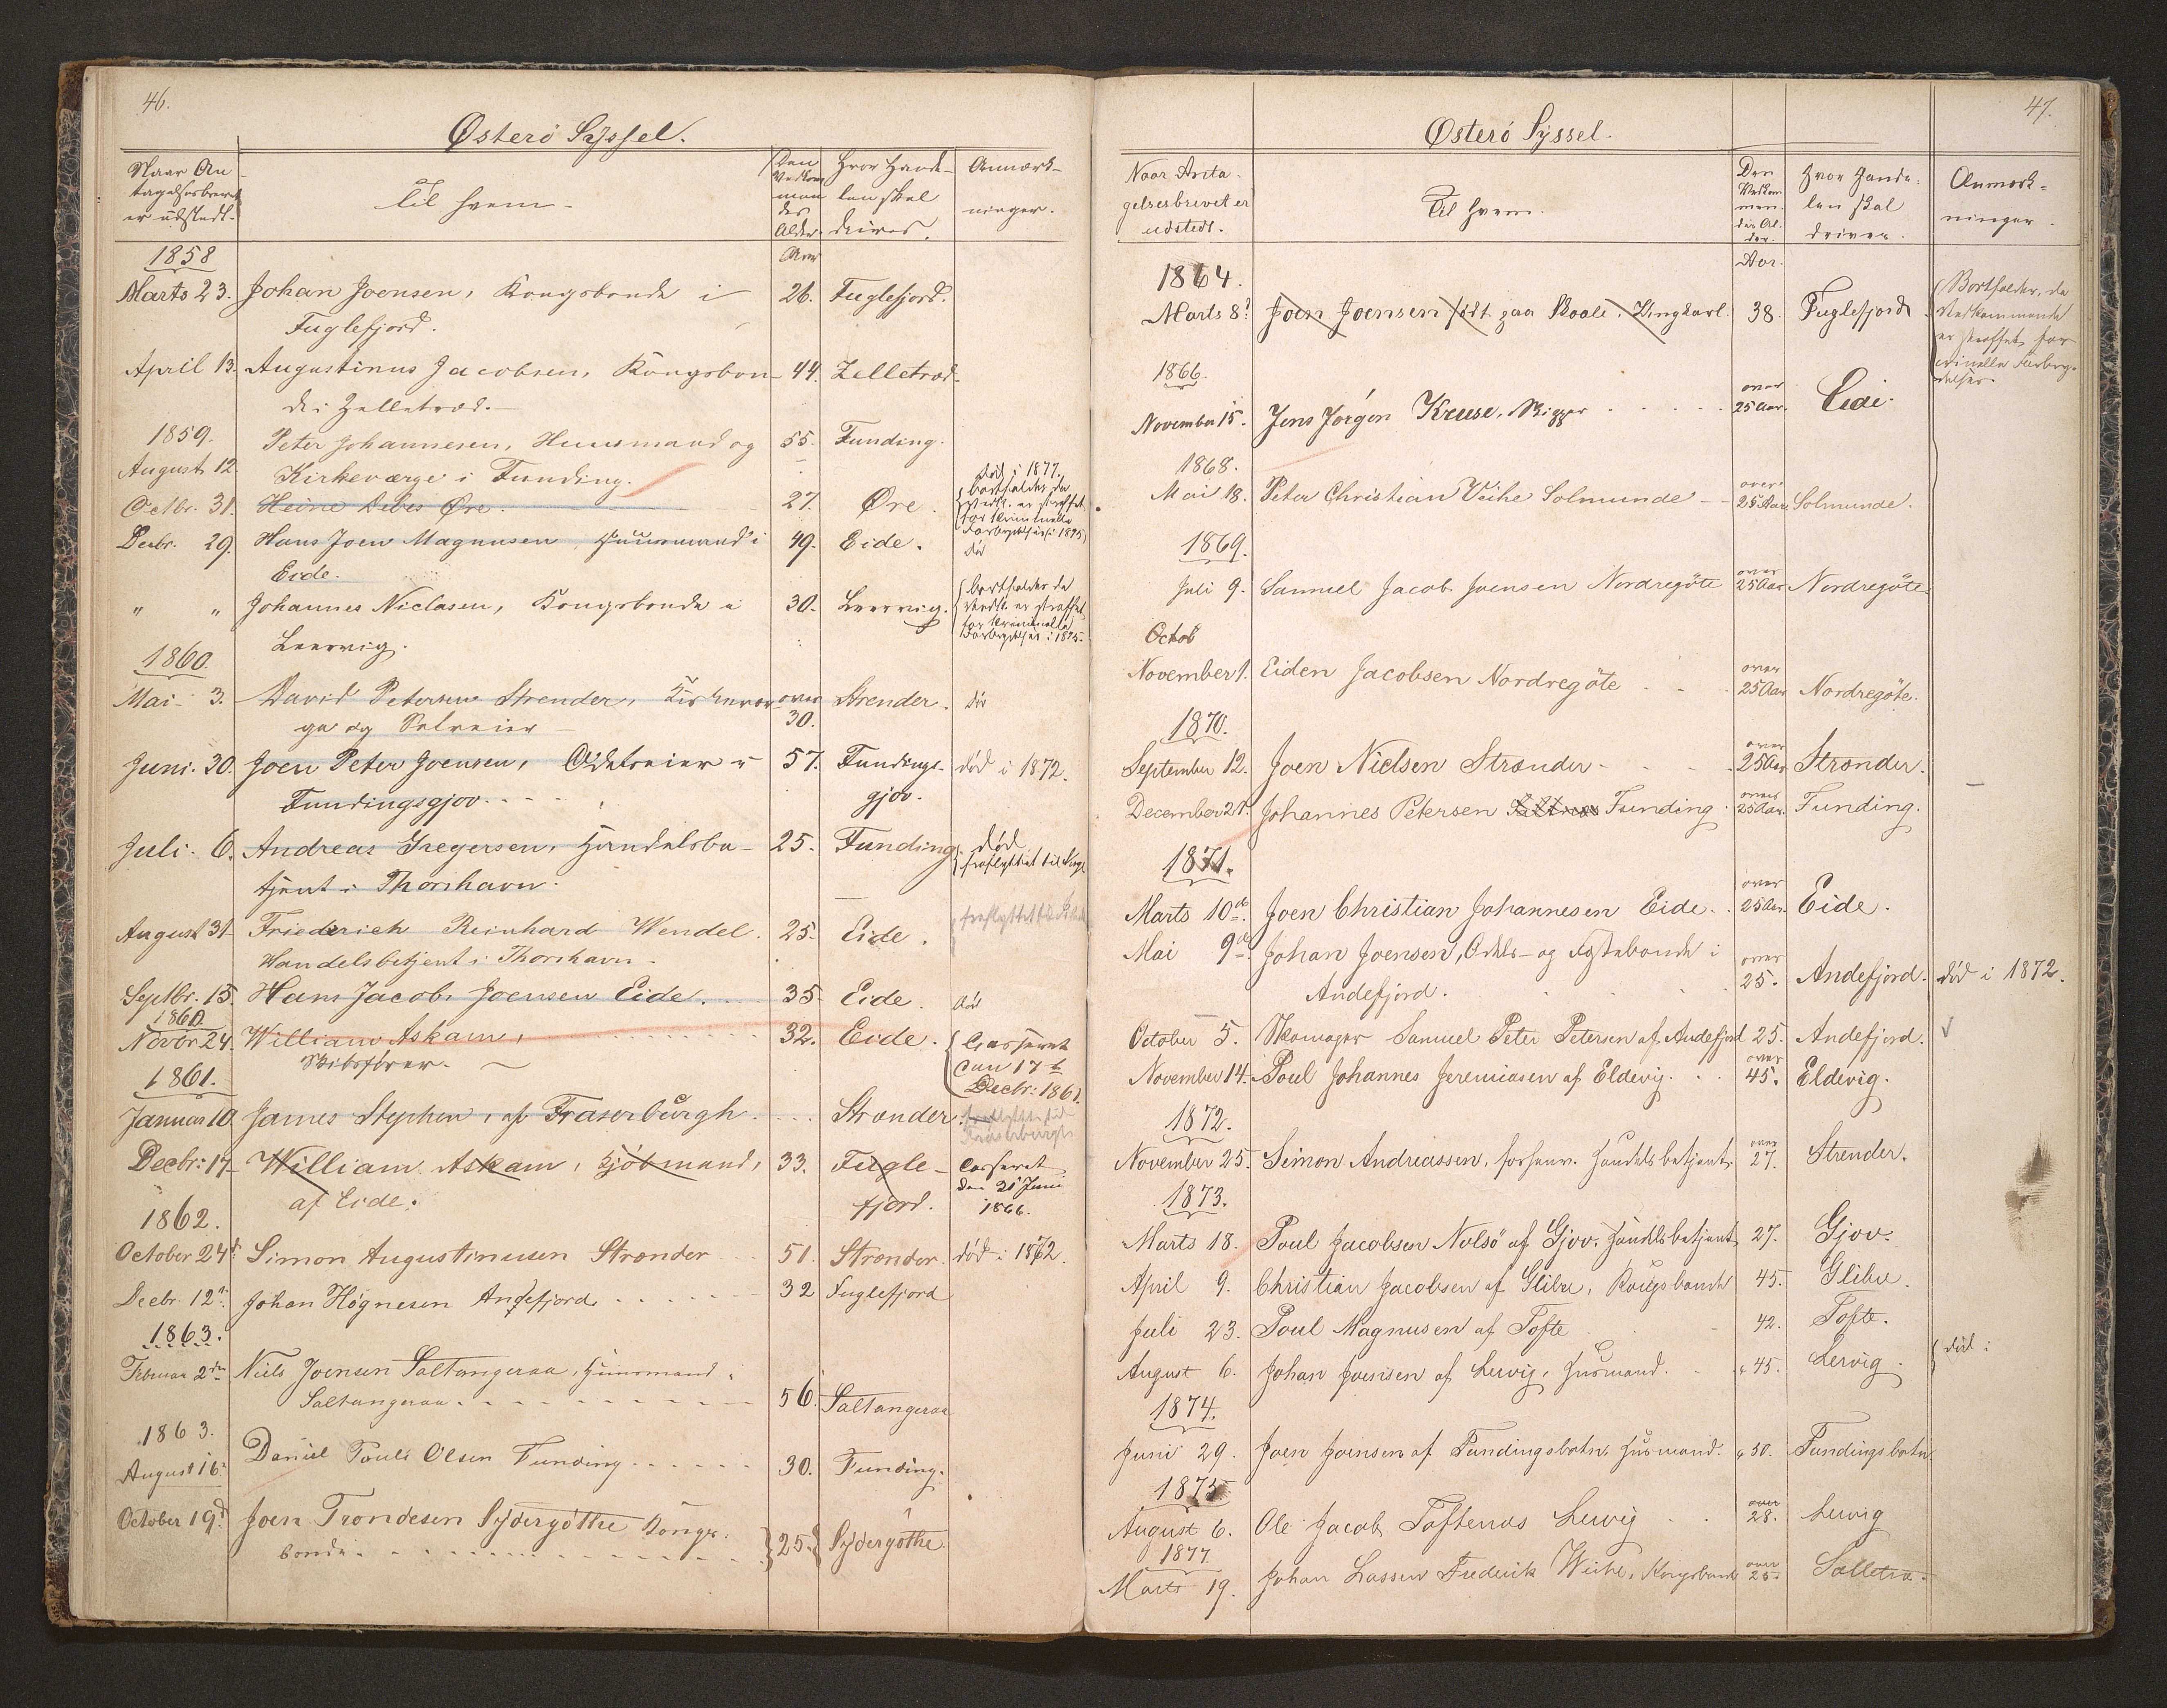 46.
Østerö Syssel.
Naar An-
tagelsesbrevet
er udstedt.
Til hvem.
Den
Vedkom
men
des
Alder.
Hvor Hande-
len skal
drives.
Anmærk-
ninger.
1858
Aar
Marts 23. Johan Joensen, Kongsbonde i 26. Fuglefjord.
Fuglefjord.
April 13. Augustinus Jacobsen, Kongsbon- 44. Zelletræd.
de i Zelletræd.
1859.
August 12. Peter Johannesen, Huusmand og 55. Funding.
Kirkeværge i Funding.
Octbr. 31. Heine Debes Øre. 27. Øre.
død i 1877.
bortfalder da
Vedk. er straffet
for kriminelle
Forbrydelser i 1875
Decbr. 29. Hans Joen Magnusen Huusmand i 49. Eide. død
Eide.
" " Johannes Niclasen, Kongsbonde i 30. Leervig.
Leervig.
bortfalder da
Vedk. er straffet
for kriminelle
Forbrydelser i 1875.
1860.
Mai 3. David Petersen Strender, Kirkevær- over Strender. død
ge og Selveier 30.
Juni 30. Joen Peter Joensen, Odelseier i 57. Fundings- død i 1872.
Fundingsgjov. gjov.
Juli 6. Andreas Gregersen, Handelsbe- 25. Funding. død
fraflyttet til
tjent i Thorshavn.
August 31 Friederich Reinhard Wendel. 25. Eide. fraflyttet
Handelsbetjent i Thorshavn.
Septbr. 15. Hans Jacob Joensen Eide. 35. Eide. død
1860.
Novbr 24. William Askam, 32. Eide. Casseret
Skibsfører. den 17 t
Decbr: 1861.
1861.
Januar 10 James Stephen, af Fraserburgh. Strænder. fraflyttet til
Fraserburgh
Decbr: 17 William Askam, Kjöbmand, 33. Fugle- Casseret
af Eide. fjord. den 21 Juni
1866.
1862.
October 24d Simon Augustinusen Strænder 51. Strænder. død i 1872.
Decbr. 12te Johan Högnesen Andefjord. 32 Fuglefjord
1863.
Februar 2den Niels Joensen Saltangeraa, Huusmand i
Saltangeraa. 56. Saltangeraa
1863.
August 16. Daniel Pauli Olsen Funding 30. Funding.
October 19d Joen Trondesen Sydergöthe Kongs- 25. Sydergöthe.
bonde.
47.
Østerö Syssel.
Naar Anta-
gelsesbrevet er
udstedt.
Til hvem.
Den
Vedkom
men-
des Al-
der.
Hvor Hande-
len skal
drives.
Anmærk-
ninger.
Aar.
1864.
Marts 8. Joen Joensen født paa Skaale, Dingkarl. 38. Fuglefjord
Bortfalder, da
Vedkommende
er straffet for
criminelle Forbry-
delser.
1866.
November 15. Jens Jörgen Kruse, Skipper over 25 Aar. Eide.
1868.
Mai 18. Peter Christian Veihe Solmunde over 25 Aar. Solmunde.
1869.
Juli 9. Samuel Jacob Joensen Nordregöte over 25 Aar Nordregöte.
Octob
November 1. Eiden Jacobsen Nordregöte over 25 Aar Nordregöte.
1870.
September 12. Joen Nielsen Strænder over 25 Aar Strænder.
December 21. Johannes Petersen Funding over 25 Aar. Funding.
1871.
Marts 10de Joen Christian Johannesen Eide. over 25 Aar. Eide.
Mai 9de Johan Joensen, Odels- og Fæstebonde i over
Andefjord. 25. Andefjord. død i 1872.
October 5. Skomager Samuel Peter Petersen af Andefjord 25. Andefjord.
November 14. Poul Johannes Jeremiasen af Eldevig. over 45. Eldevig.
1872.
November 25. Simon Andreassen, forhenv. Handelsbetjent. over 27. Strender.
1873.
Marts 18. Poul Jacobsen Nolsö af Gjov. Handelsbetjent 27. Gjov.
April 9. Christian Jacobsen af Glibre, Kongsbonde 45. Glibre.
Juli 23. Poul Magnusen af Tofte 42. Tofte.
August 6. Johan Joensen af Lervig, Husmand. 45. Lervig. død i
1874.
Juni 29. Joen Joensen af Fundingsbotn, Husmand. 50. Fundingsbotn
1875
August 6. Ole Jacob Toftenæs Lervig over 28. Lervig
1877
Marts 19. Johan Lassen Frederik Weihe, Kongsbonde over 25. Selletræ.